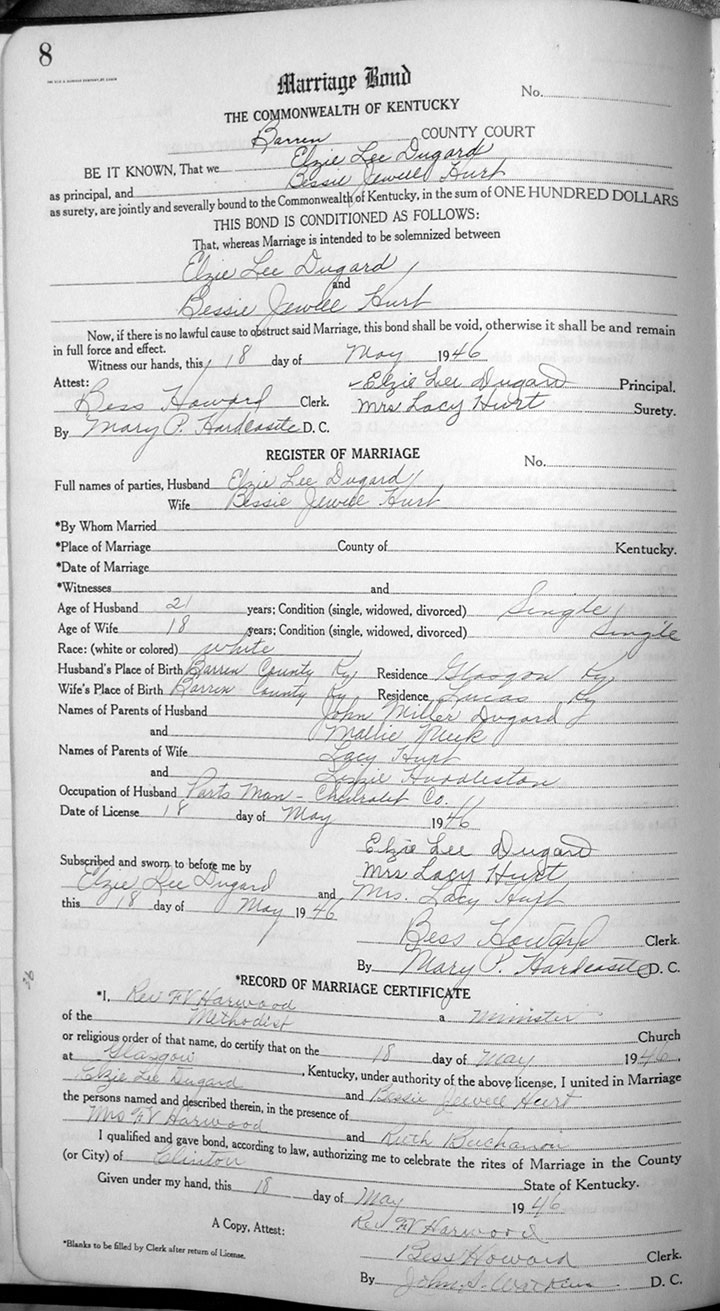 8
Marriage Bond
No.
THE COMMONWEALTH OF KENTUCKY
Barren COUNTY COURT
BE IT KNOWN, That we Elzie Lee Dugard
as principal, and Bessie Jewell Hurt
as surety, are jointly and severally bound to the Commonwealth of Kentucky, in the sum of ONE HUNDRED DOLLARS
THIS BOND IS CONDITIONED AS FOLLOWS:
That, whereas Marriage is intended to be solemnized between
Elzie Lee Dugard
and
Bessie Jewell Hurt
Now, if there is no lawful cause to obstruct said Marriage, this bond shall be void, otherwise it shall be and remain
in full force and effect.
Witness our hands, this 18 day of May 1946
Attest: Elzie Lee Dugard Principal.
Bess Howard Clerk. Mrs Lacy Hurt Surety.
By Mary P. Hardcastle D. C.
REGISTER OF MARRIAGE
No.
Full names of parties, Husband Elzie Lee Dugard
Wife Bessie Jewell Hurt
*By Whom Married
*Place of Marriage County of Kentucky.
*Date of Marriage
*Witnesses and
Age of Husband 21 years; Condition (single, widowed, divorced) Single
Age of Wife 18 years; Condition (single, widowed, divorced) Single
Race: (white or colored) white
Husband's Place of Birth Barren County Ky Residence Glasgow Ky
Wife's Place of Birth Barren County Ky Residence Lucas Ky
Names of Parents of Husband John Miller Dugard
and Mallie Meek
Names of Parents of Wife Lacy Hurt
and Lizzie Huddleston
Occupation of Husband Parts Man - Chevrolet Co.
Date of License 18 day of May 1946
Elzie Lee Dugard
Mrs Lacy Hurt
Subscribed and sworn to before me by
Elzie Lee Dugard and Mrs. Lacy Hurt
this 18 day of May 1946
Bess Howard Clerk.
By Mary P. Hardcastle D. C.
*RECORD OF MARRIAGE CERTIFICATE
*I, Rev FV Harwood a Minister
of the Methodist Church
or religious order of that name, do certify that on the 18 day of May 1946,
at Glasgow, Kentucky, under authority of the above license, I united in Marriage
Elzie Lee Dugard and Bessie Jewell Hurt
the persons named and described therein, in the presence of
Mrs FV Harwood and Ruth Buchanon
I qualified and gave bond, according to law, authorizing me to celebrate the rites of Marriage in the County
(or City) of Clinton State of Kentucky.
Given under my hand, this 18 day of May 1946
Rev FV Harwood
A Copy, Attest:
Bess Howard Clerk.
*Blanks to be filled by Clerk after return of License.
By John D. C.